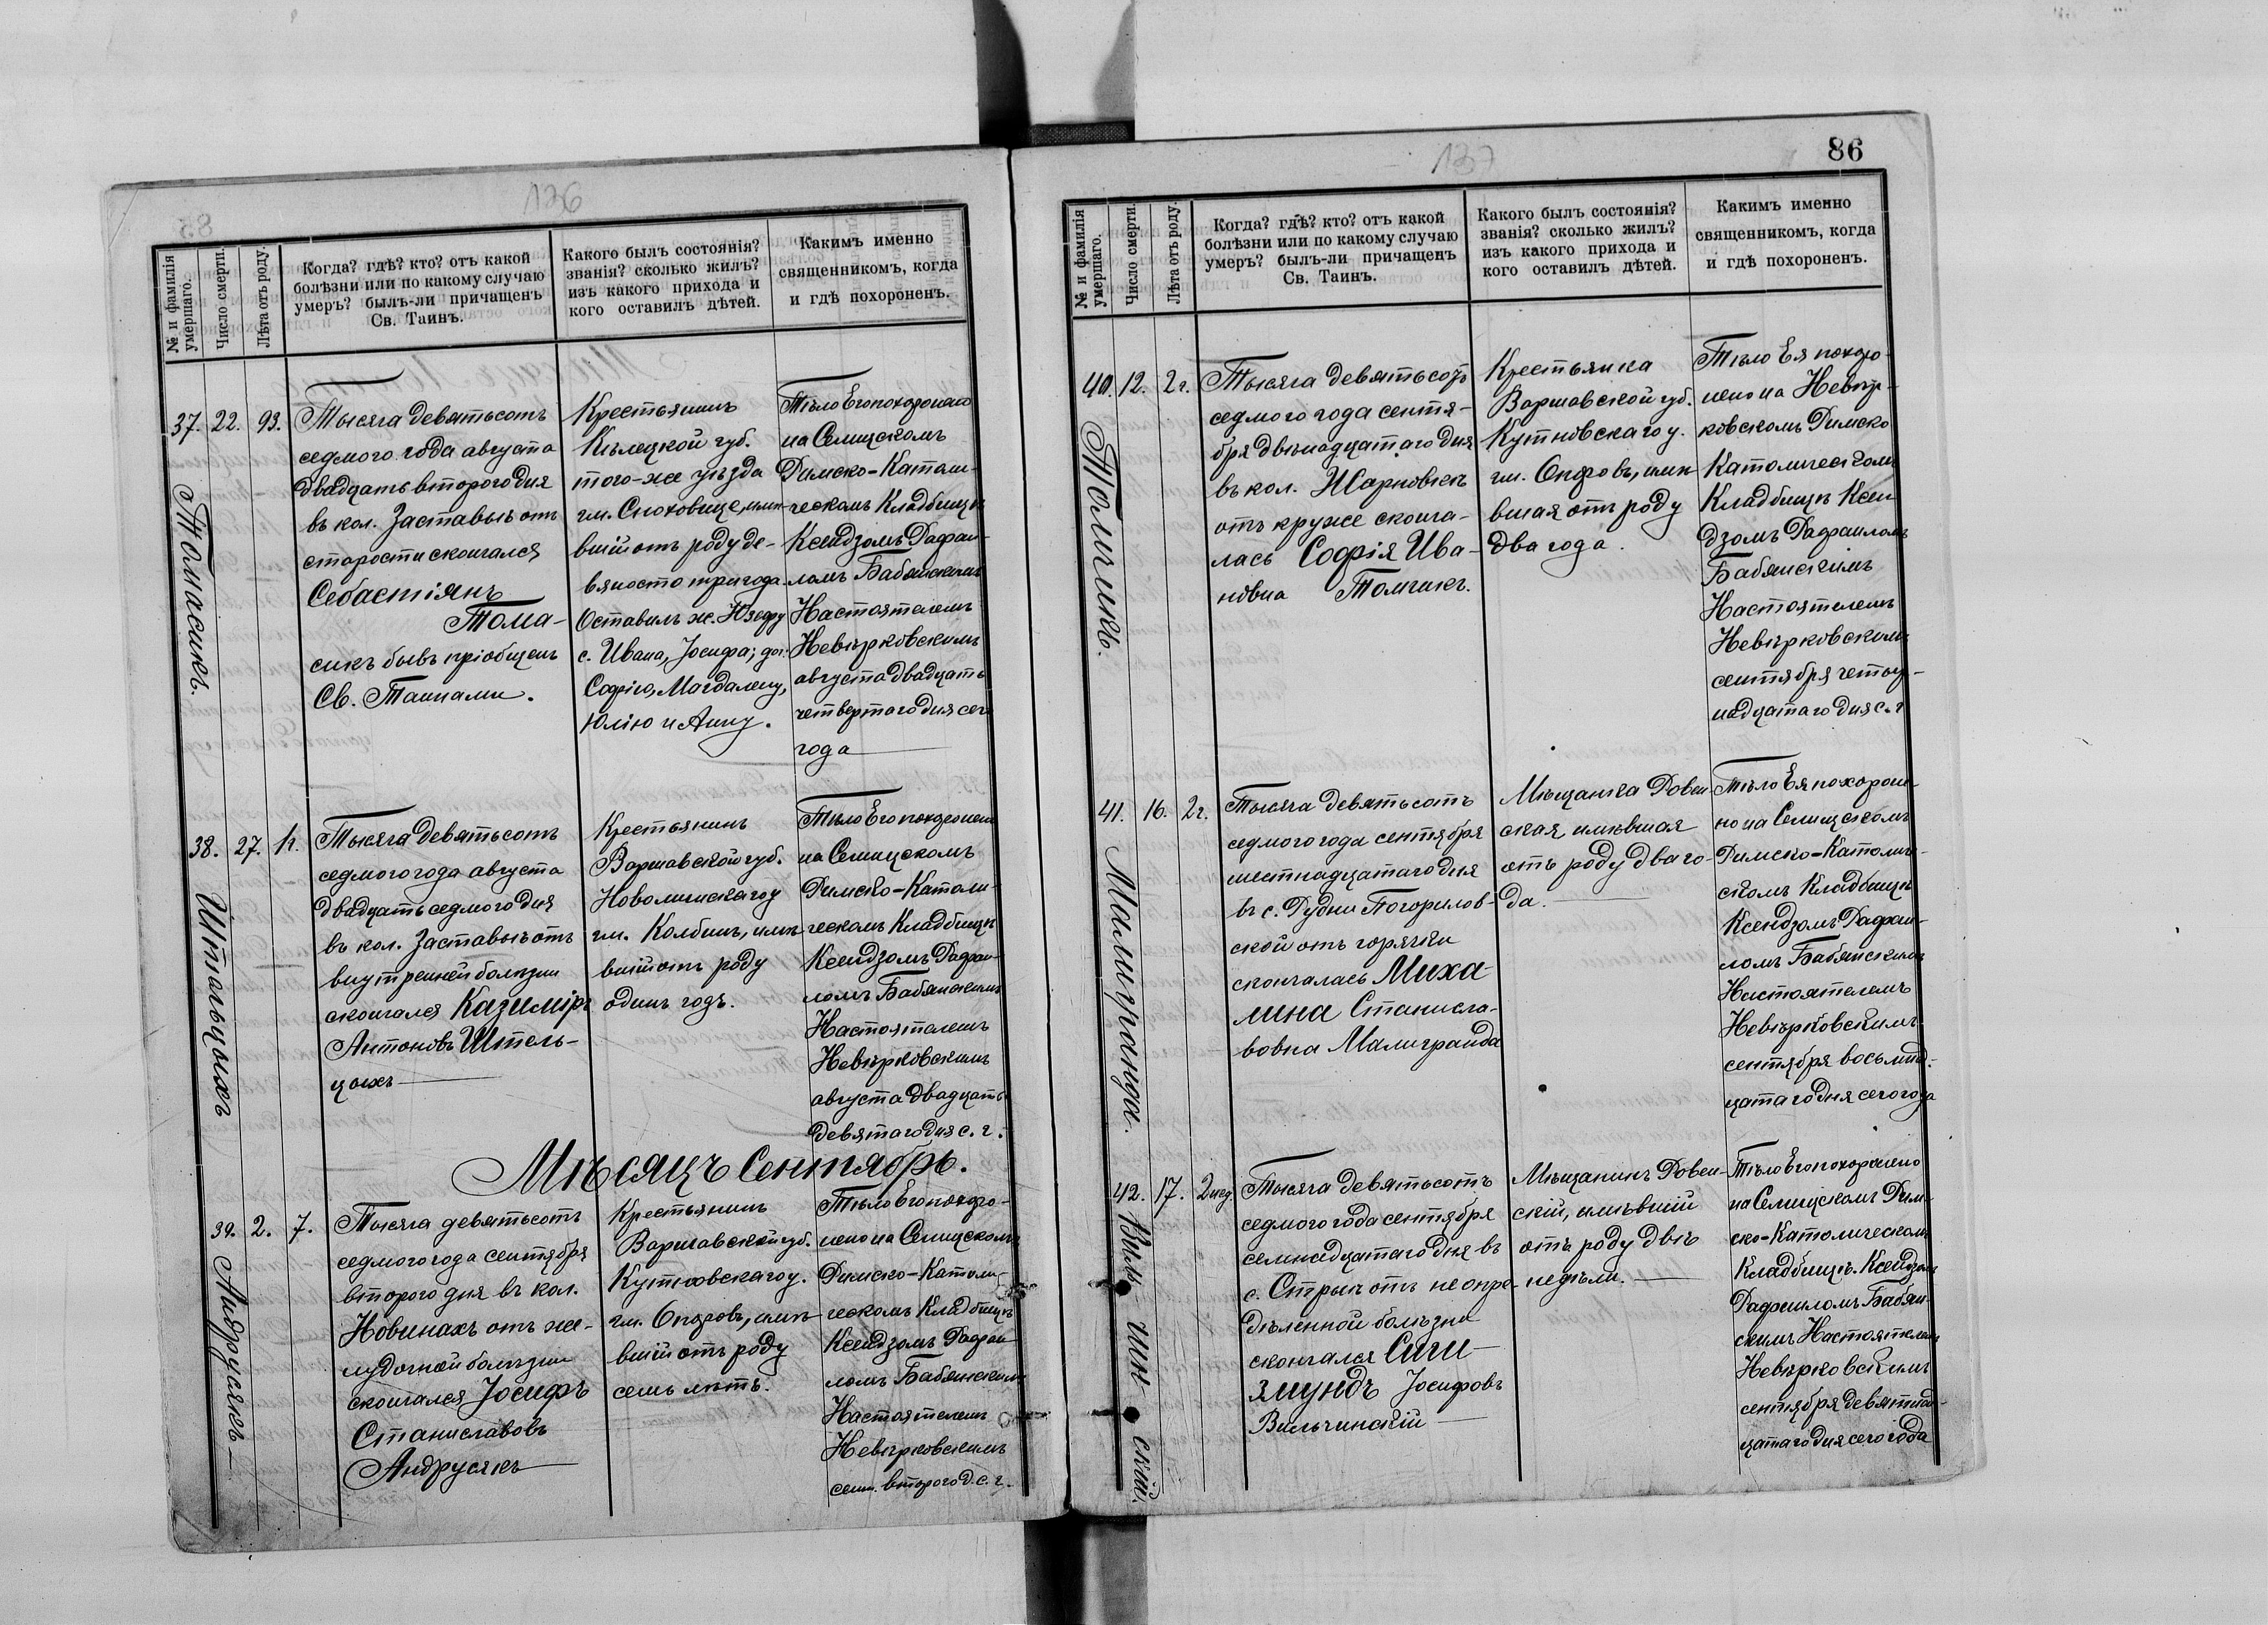 136
№ и фамилія
умершаго.
Число смерти.
Лѣта отъ роду.
Когда? гдѣ? кто? отъ какой
болѣзни или по какому случаю
умеръ? былъ-ли причащенъ
Св. Таинъ.
Какого былъ состоянія?
званія? сколько жилъ?
изъ какого прихода и
кого оставилъ дѣтей.
Какимъ именно
священникомъ, когда
и гдѣ похороненъ.
37. 22. 93.
Томасикъ.
Тысяча девятьсотъ
седмого года августа
двадцать второго дня
въ кол. Заставье отъ
старости скончался
Себастіянъ
Тома-
сикъ бывъ пріобщенъ
Св. Таинами.
Крестьянинъ
Кѣлецкой губ.
того-же уѣзда
гм. Сноховице, имѣ-
вшій отъ роду де-
вяносто три года.
Оставилъ ж. Юзефу
с. Ивана, Іосифа; доч.
Софію, Магдалену,
Юлію и Анну.
Тѣло Его похоронено
на Селищскомъ
Римско-Католи-
ческомъ Кладбищѣ
Ксендзомъ Рафаи-
ломъ Бабянскимъ
Настоятелемъ
Невѣрковскимъ
августа двадцать
четвертаго дня сего
года
38. 27. 1г.
Штельцыхъ
Тысяча девятьсотъ
седмого года августа
двадцать седмого дня
въ кол. Заставье отъ
внутренней болѣзни
скончался Казимiръ
Антоновъ Штель-
цыхъ
Крестьянинъ
Варшавской губ.
Новоминскаго у
гм. Колбиль, имѣ-
вшій отъ роду
одинъ годъ.
Тѣло Его похоронено
на Селищскомъ
Римско-Католи-
ческомъ Кладбищѣ
Ксендзомъ Рафаи-
ломъ Бабянскимъ
Настоятелемъ
Невѣрковскимъ
августа двадцать
девятаго дня с. г.
Мѣсяцъ Сентябрь.
39. 2. 7.
Андрусякъ
Тысяча девятьсотъ
седмого года сентября
второго дня въ кол.
Новинахъ отъ же-
лудочной болѣзни
скончался Іосифъ
Станиславовъ
Андрусякъ
Крестьянинъ
Варшавской губ.
Кутновскаго у.
гм. Опоровъ, имѣ-
вшій отъ роду
семь лѣтъ.
Тѣло Его похоро-
нено на Селищскомъ
Римско-Католи-
ческомъ Кладбищѣ
Ксендзомъ Рафаи-
ломъ Бабянскимъ
Настоятелемъ
Невѣрковскимъ
сент. второго д. с. г.
137
86
№ и фамилія
умершаго.
Число смерти.
Лѣта отъ роду.
Когда? гдѣ? кто? отъ какой
болѣзни или по какому случаю
умеръ? былъ-ли причащенъ
Св. Таинъ.
Какого былъ состоянія?
званія? сколько жилъ?
изъ какого прихода и
кого оставилъ дѣтей.
Какимъ именно
священникомъ, когда
и гдѣ похороненъ.
40. 12. 2г.
Томчикъ.
Тысяча девятьсотъ
седмого года сентя-
бря двѣнадцатаго дня
въ кол. Жарновкѣ
отъ круже сконча-
лась Софія Ива-
новна Томчикъ.
Крестьянка
Варшавской губ.
Кутновскаго у.
гм. Опоровъ, имѣ
вшая отъ роду
два года.
Тѣло Ея похоро-
нено на Невѣр-
ковскомъ Римско
Католическомъ
Кладбищѣ Ксен
дзомъ Рафаиломъ
Бабянскимъ
Настоятелемъ
Невѣрковскимъ
сентября четыр-
надцатаго дня с. г
41. 16. 2г.
Малигранда.
Тысяча девятьсотъ
седмого года сентября
шестнадцатаго дня
въ с. Рудни Погорилов-
ской отъ горячки
скончалась Миха-
лина Станисла-
вовна Малигранда
Мѣщанка Ровен-
ская имѣвшая
отъ роду два го-
да.
Тѣло Ея похороне-
но на Селищскомъ
Римско-Католиче-
скомъ Кладбищѣ
Ксендзомъ Рафаи-
ломъ Бабянскимъ
Настоятелемъ
Невѣрковскимъ
сентября восьмнад-
цатаго дня сего года
42. 17. 2нед
Виль чин скій.
Тысяча девятьсотъ
седмого года сентября
семнадцатаго дня въ
с. Стрый отъ не опре-
дѣленной болѣзни
скончался Сиги-
змундъ Іосифовъ
Вильчинскій
Мѣщанинъ Ровен-
скій, имѣвшій
отъ роду двѣ
недѣли.
Тѣло Его похоронено
на Селищскомъ Рим-
ско-Католическомъ
Кладбищѣ. Ксендзомъ
Рафаиломъ Бабян-
скимъ Настоятелемъ
Невѣрковскимъ
сентября девятнад-
цатаго дня сего года